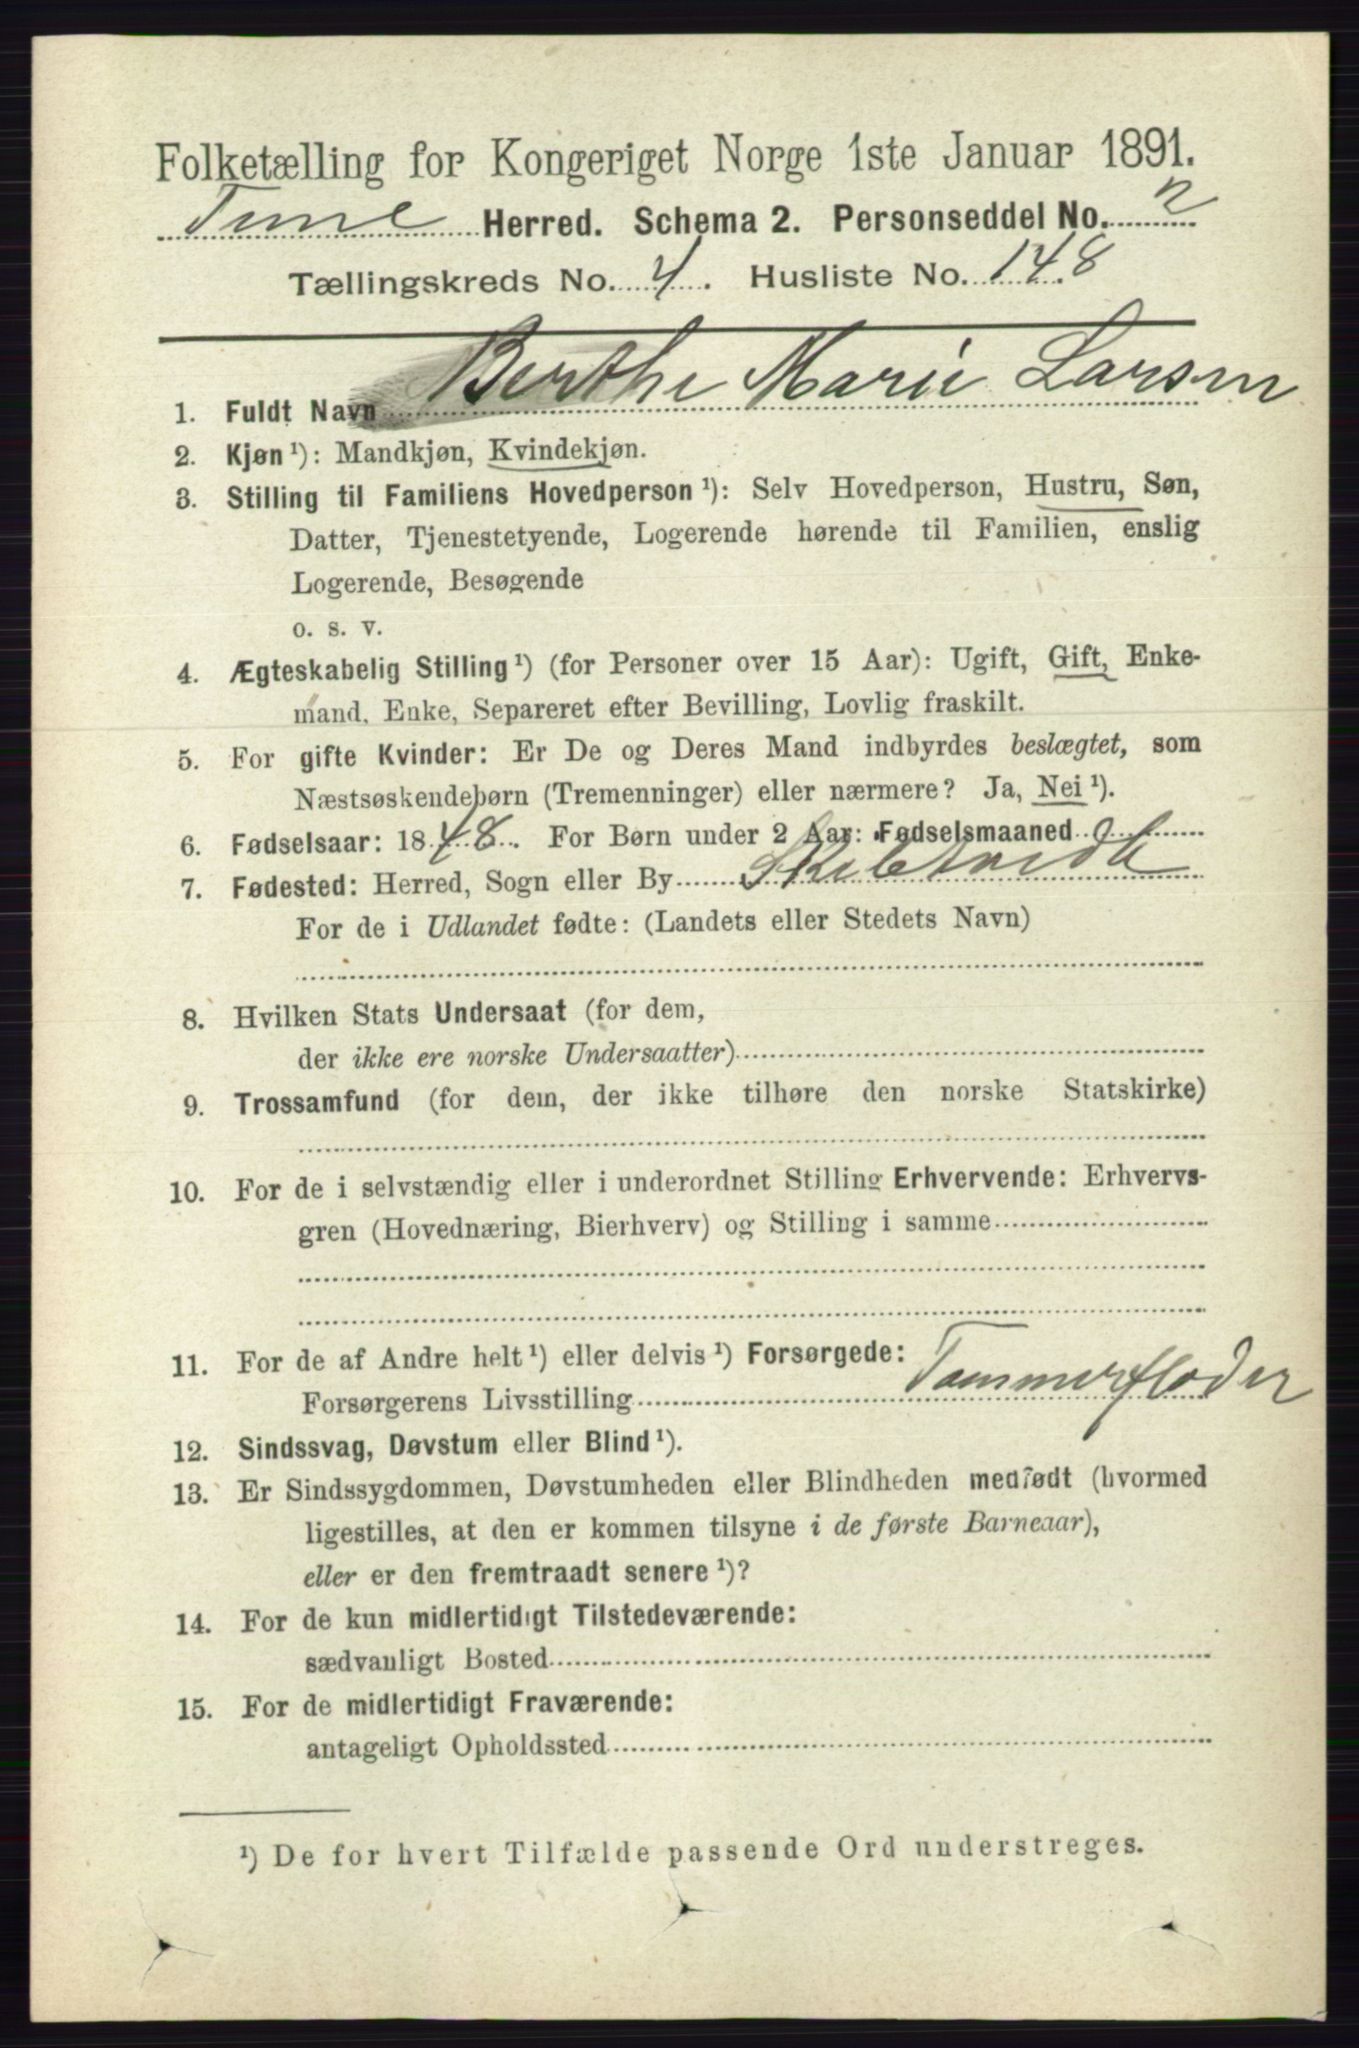 Folketælling for Kongeriget Norge 1ste Januar 1891.
Tune Herred. Schema 2. Personseddel No. 2
Tællingskreds No. 4. Husliste No. 148
1. Fuldt Navn Berthe Marie Larsen
2. Kjøn ¹): Mandkjøn, Kvindekjøn.
3. Stilling til Familiens Hovedperson ¹): Selv Hovedperson, Hustru, Søn,
Datter, Tjenestetyende, Logerende hørende til Familien, enslig
Logerende, Besøgende
o. s. v.
4. Ægteskabelig Stilling ¹) (for Personer over 15 Aar): Ugift, Gift, Enke-
mand, Enke, Separeret efter Bevilling, Lovlig fraskilt.
5. For gifte Kvinder: Er De og Deres Mand indbyrdes beslægtet, som
Næstsøskendebørn (Tremenninger) eller nærmere? Ja, Nei ¹).
6. Fødselsaar: 1848. For Børn under 2 Aar: Fødselsmaaned
7. Fødested: Herred, Sogn eller By Skibtvedt
For de i Udlandet fødte: (Landets eller Stedets Navn)
8. Hvilken Stats Undersaat (for dem,
der ikke ere norske Undersaatter)
9. Trossamfund (for dem, der ikke tilhøre den norske Statskirke)
10. For de i selvstændig eller i underordnet Stilling Erhvervende: Erhvervs-
gren (Hovednæring, Bierhverv) og Stilling i samme
11. For de af Andre helt ¹) eller delvis ¹) Forsørgede:
Forsørgerens Livsstilling Tømmerfløder
12. Sindssvag, Døvstum eller Blind ¹).
13. Er Sindssygdommen, Døvstumheden eller Blindheden medfødt (hvormed
ligestilles, at den er kommen tilsyne i de første Barneaar),
eller er den fremtraadt senere ¹)?
14. For de kun midlertidigt Tilstedeværende:
sædvanligt Bosted
15. For de midlertidigt Fraværende:
antageligt Opholdssted
¹) De for hvert Tilfælde passende Ord understreges.